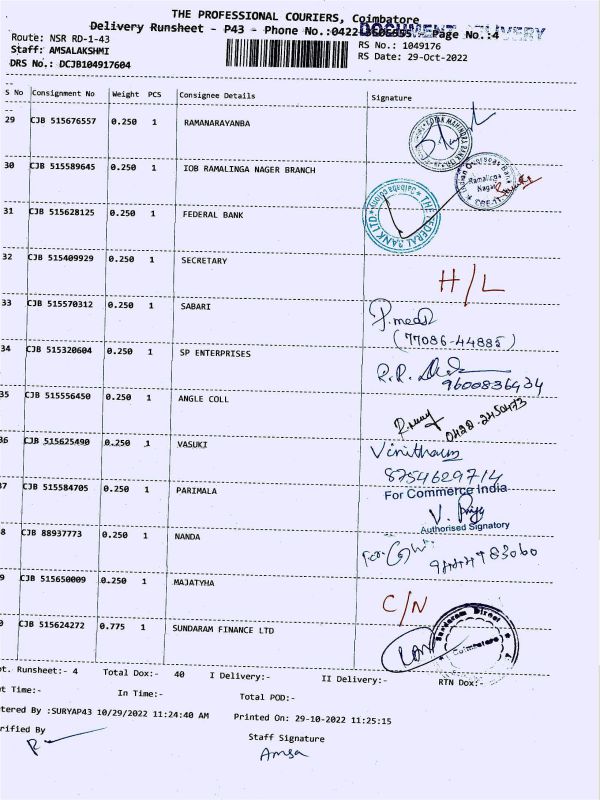 THE PROFESSIONAL COURIERS, Coimbatore
DOCUMENT DELIVERY
Delivery Runsheet - P43 - Phone No.:0422- Page No.:4
Route: NSR RD-1-43
RS No.: 1049176
Staff: AMSALAKSHMI
RS Date: 29-Oct-2022
DRS No.: DCJB104917604
S No Consignment No Weight PCS Consignee Details Signature
29 CJB 515676557 0.250 1 RAMANARAYANBA
KOTAK MAHINDRA BANK
30 CJB 515589645 0.250 1 IOB RAMALINGA NAGER BRANCH
Indian Overseas Bank
Ramalinga
Nagar
CBE-11
31 CJB 515628125 0.250 1 FEDERAL BANK
THE FEDERAL BANK LTD
32 CJB 515409929 0.250 1 SECRETARY
H/L
33 CJB 515570312 0.250 1 SABARI
(77086-44885)
34 CJB 515320604 0.250 1 SP ENTERPRISES
R.R.
9600836434
35 CJB 515556450 0.250 1 ANGLE COLL
0422-2450473
36 CJB 515625490 0.250 1 VASUKI
8754629714
37 CJB 515584705 0.250 1 PARIMALA
For Commerce India
V. Priya
Authorised Signatory
8 CJB 88937773 0.250 1 NANDA
9 CJB 515650009 0.250 1 MAJATYHA
C/N
0 CJB 515624272 0.775 1 SUNDARAM FINANCE LTD
Sundaram Direct
Coimbatore
ot. Runsheet:- 4 Total Dox:- 40 I Delivery:- II Delivery:- RTN Dox:-
ut Time:- In Time:- Total POD:-
tered By :SURYAP43 10/29/2022 11:24:40 AM Printed On: 29-10-2022 11:25:15
rified By Staff Signature
Amsa